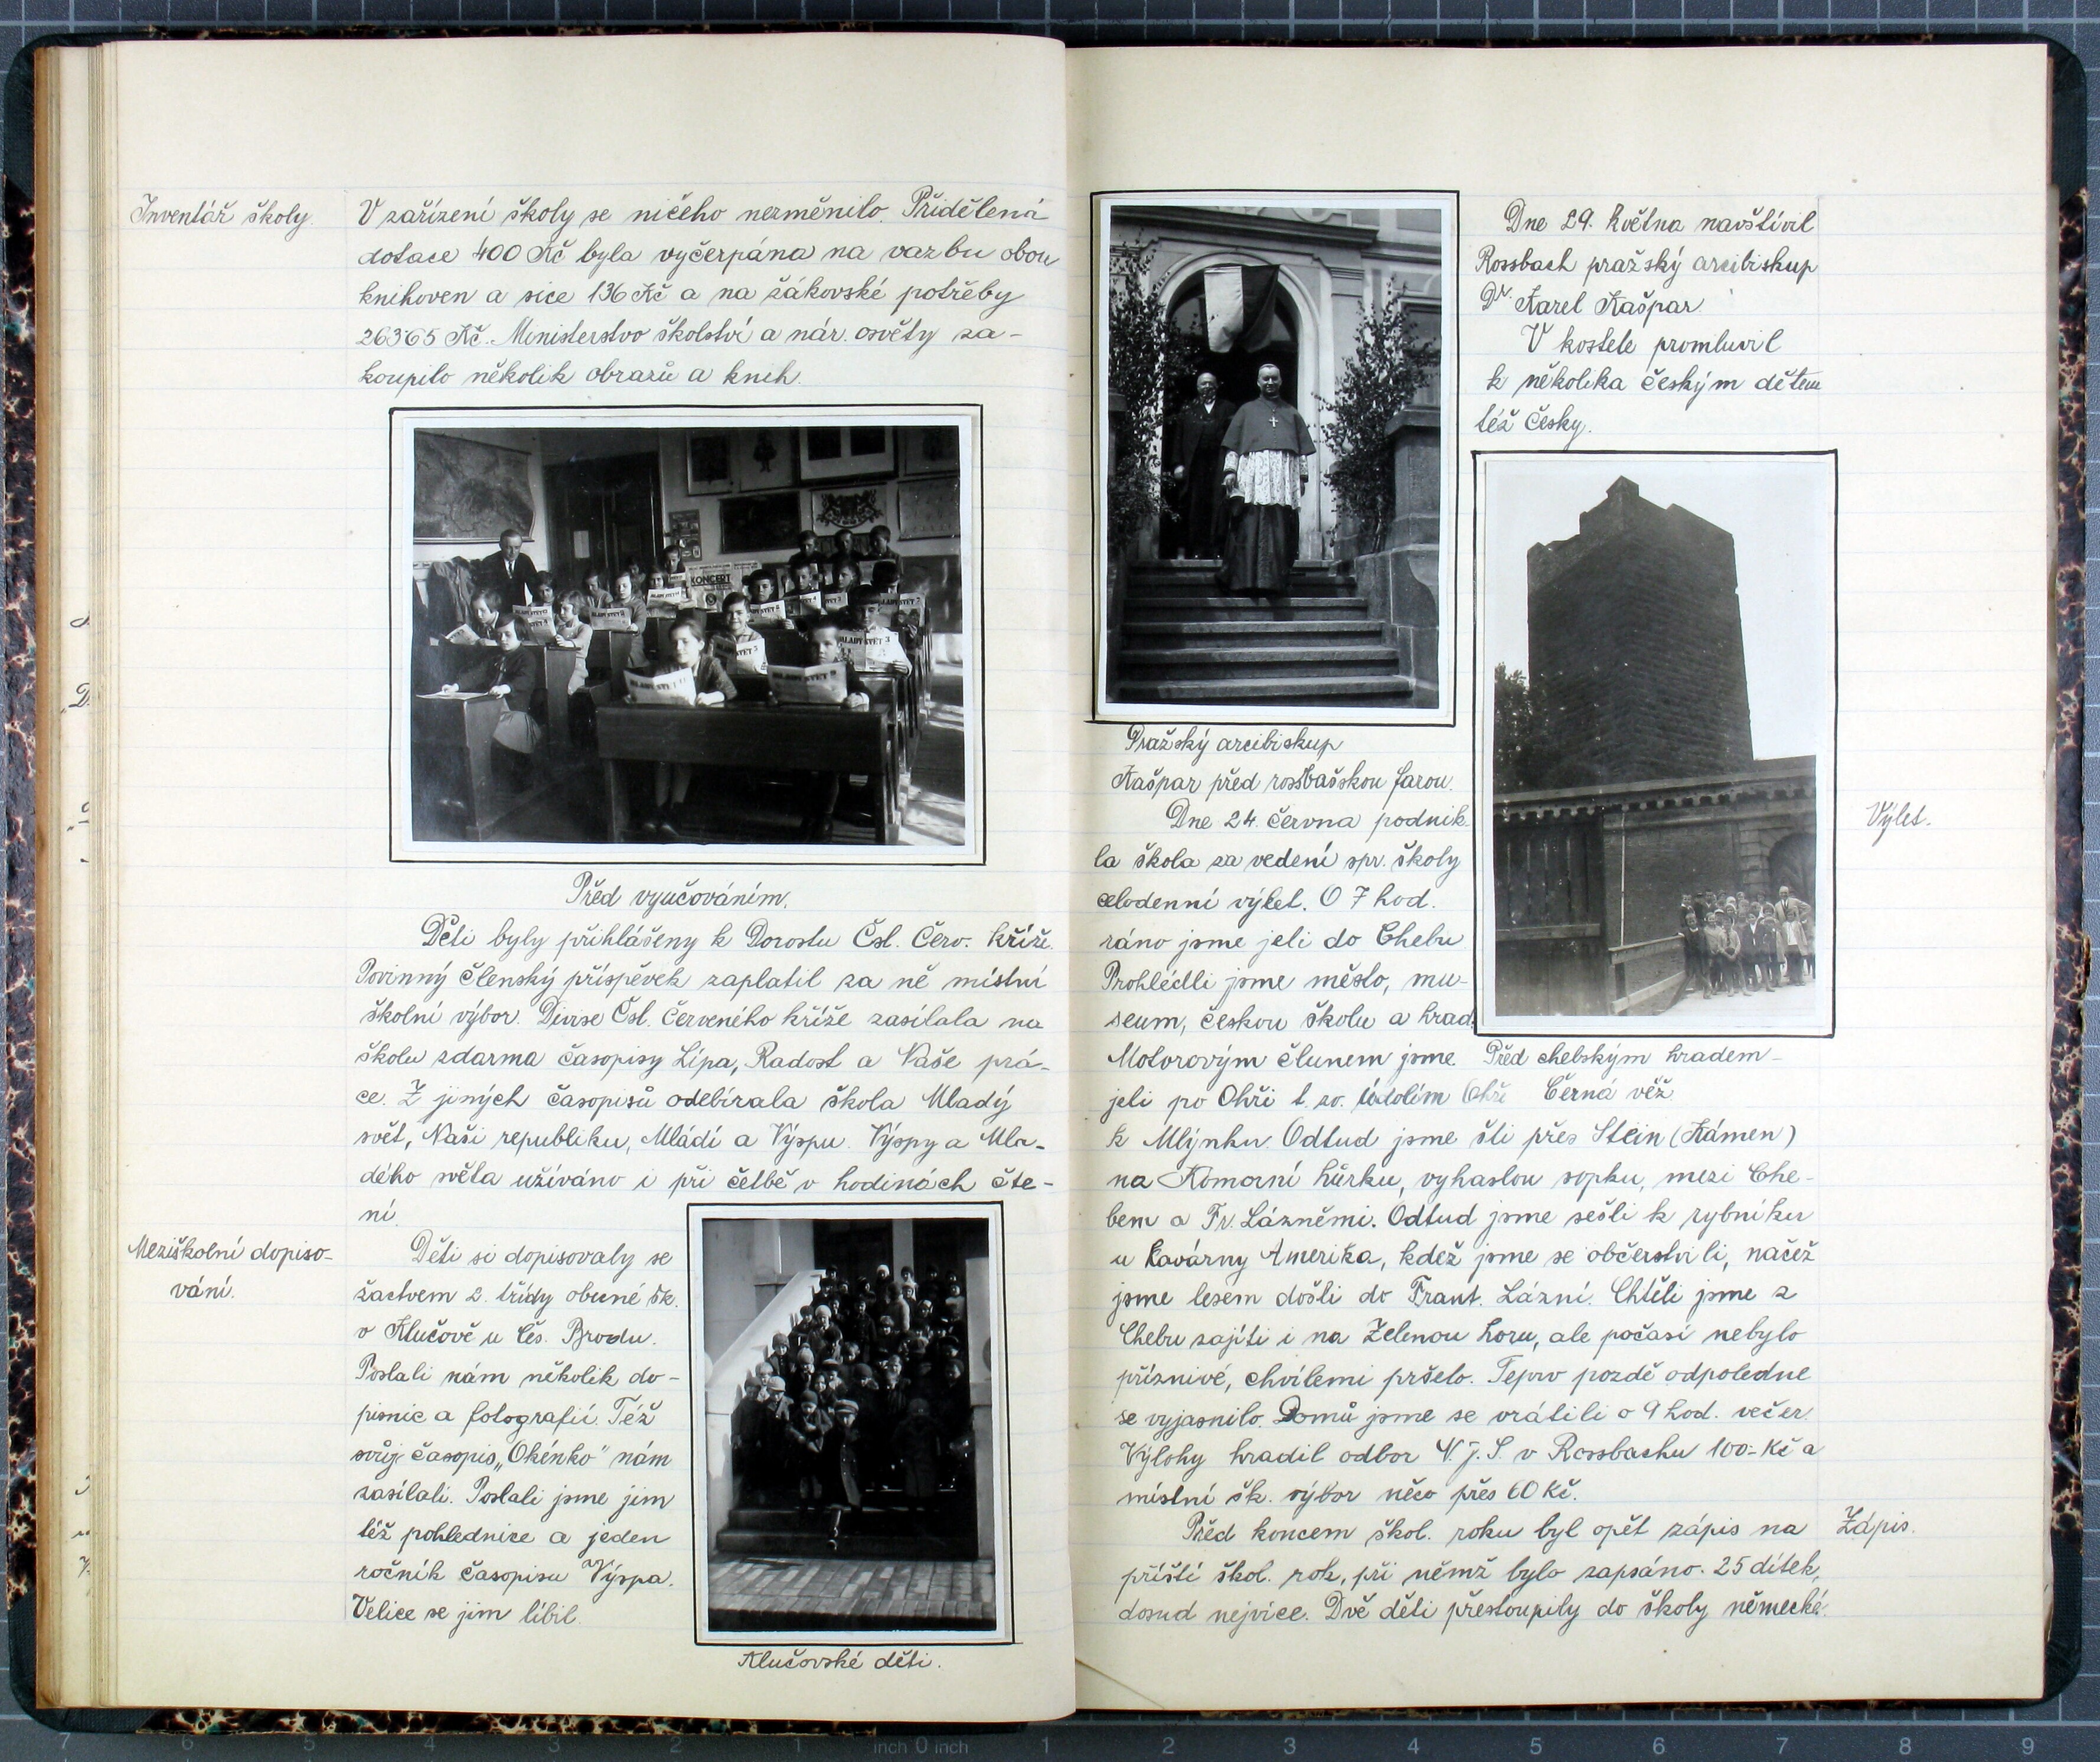 Inventář školy.
V zařízení školy se ničeho nezměnilo. Přidělená
dotace 400 Kč byla vyčerpána na vazbu obou
knihoven a sice 136 Kč a na žákovské potřeby
263·65 Kč. Ministerstvo školství a nár. osvěty za-
koupilo několik obrazů a knih.
KONCERT
MLADÝ SVĚT
Před vyučováním.
Děti byly přihlášeny k Dorostu Čsl. Červ. kříže.
Povinný členský příspěvek zaplatil za ně místní
školní výbor. Divise Čsl. Červeného kříže zasílala na
školu zdarma časopisy Lípa, Radost a Naše prá-
ce. Z jiných časopisů odebírala škola Mladý
svět, Naši republiku, Mládí a Výspu. Výspy a Mla-
dého světa užíváno i při četbě v hodinách čte-
ní.
Meziškolní dopiso-
vání.
Děti si dopisovaly se
žactvem 2. třídy obecné šk.
v Klučově u Čes. Brodu.
Poslali nám několik do-
pisnic a fotografií. Též
svůj časopis „Okénko" nám
zasílali. Poslali jsme jim
též pohlednice a jeden
ročník časopisu Výspa.
Velice se jim líbil.
Klučovské děti.
Dne 29. května navštívil
Rossbach pražský arcibiskup
Dr. Karel Kašpar.
V kostele promluvil
k několika českým dětem
též česky.
Pražský arcibiskup
Kašpar před rossbašskou farou.
Výlet.
Dne 24. června podnik-
la škola za vedení spr. školy
celodenní výlet. O 7 hod.
ráno jsme jeli do Chebu
Prohlédli jsme město, mu-
seum, českou školu a hrad.
Motorovým člunem jsme
Před chebským hradem -
Černá věž
jeli po Ohři t. zv. údolím Ohře
k Mlýnku. Odtud jsme šli přes Stein (Kámen)
na Komorní hůrku, vyhaslou sopku, mezi Che-
bem a Fr. Lázněmi. Odtud jsme sešli k rybníku
u kavárny Amerika, kdež jsme se občerstvili, načež
jsme lesem došli do Frant. Lázní. Chtěli jsme z
Chebu zajíti i na Zelenou horu, ale počasí nebylo
příznivé, chvílemi pršelo. Teprv pozdě odpoledne
se vyjasnilo. Domů jsme se vrátili o 9 hod. večer.
Výlohy hradil odbor N. J. S. v Rossbachu 100.- Kč a
místní šk. výbor něco přes 60 Kč.
Zápis.
Před koncem škol. roku byl opět zápis na
příští škol. rok, při němž bylo zapsáno 25 dítek,
dosud nejvíce. Dvě děti přestoupily do školy německé.
7 6 5 4 3 2 1 inch 0 inch 1 2 3 4 5 6 7 8 9